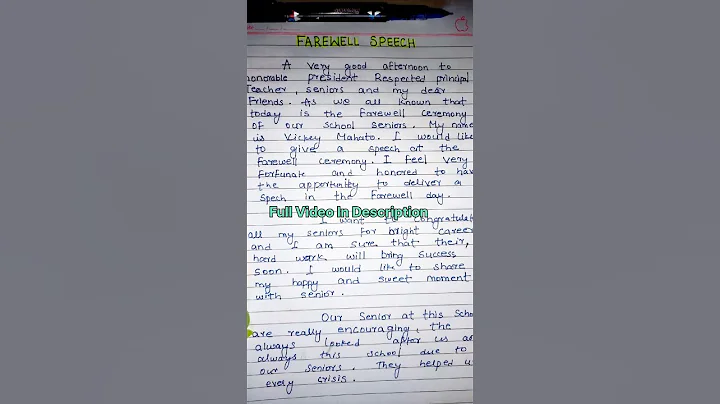 FAREWELL SPEECH
A very good afternoon to
honorable president Respected principal
Teacher, seniors and my dear
Friends. As we all known that
today is the Farewell ceremony
of our school seniors. My name
is Vickey Mahato. I would like
to give a speech at the
farewell ceremony. I feel very
Fortunate and honored to hav
the apportunity to deliver a
spech in the Farewell day.
Full Video In Description
I want to congratulat
all my seniors For bright career
and I am sure that their,
hard work will bring success
soon. I would like to share
my happy and sweet moment
with senior.
Our Senior at this Scho
are really encouraging, the
always looked after us a
always this school due to
our seniors. They helped u
every crisis.